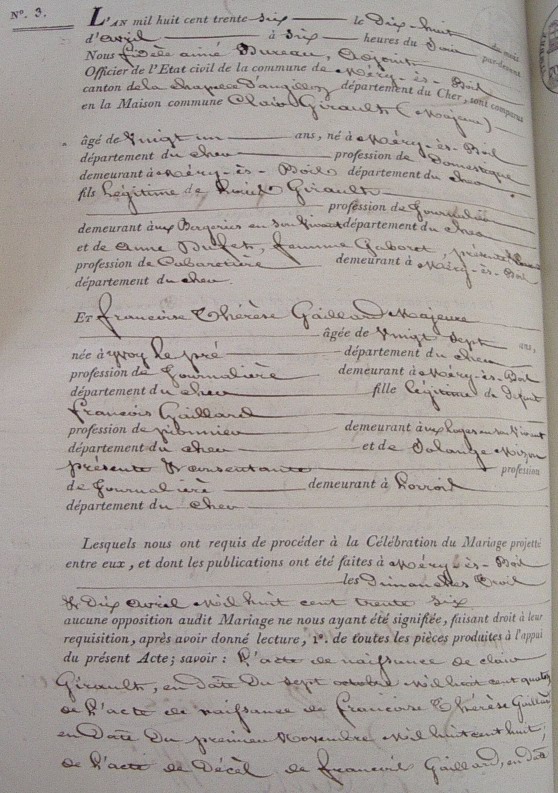 N°. 3.
L'AN mil huit cent trente six le Dix-huit du mois
d'avril à Six heures du Soir par-devant
Nous fidèle aimé Bureau, Adjoint
Officier de l'Etat civil de la commune de Méry-ès-Bois
canton de la chapelle d'angillon département du Cher, sont comparus
en la Maison commune Clair Girault (Majeur)
âgé de Vingt un ans, né à Méry-ès-Bois
département du cher profession de Domestique
demeurant à Méry-ès-Bois département du cher
fils légitime de Girault
profession de Journalier
demeurant aux Bergeries en son Vivant département du cher
et de anne Dufet, femme Gaboret, présente
profession de Cabaretière demeurant à Méry-ès-Bois
département du cher
ET francoise Thérèse Gaillard Majeure
âgée de Vingt Sept ans,
née à yvoy le pré département du cher
profession de Journalière demeurant à Méry-ès-Bois
département du cher fille légitime de Défunt
francois Gaillard
profession de pionnier demeurant aux en son Vivant
département du cher et de Solange
présente & consentante profession
de Journalière demeurant à
département du cher
Lesquels nous ont requis de procéder à la Célébration du Mariage projetté
entre eux, et dont les publications ont été faites à Méry-ès-Bois
les Dimanches Trois
& Dix avril Mil huit cent trente six
aucune opposition audit Mariage ne nous ayant été signifiée, faisant droit à leur
requisition, après avoir donné lecture, 1°. de toutes les pièces produites à l'appui
du présent Acte; savoir: L'acte de naissance de clair
Girault, en date Du sept octobre Mil huit cent quatorze
de L'acte de naissance de francoise Thérèse Gaillard
en date Du premier Novembre Mil huit cent huit,
de L'acte de Décès de francois Gaillard, en date